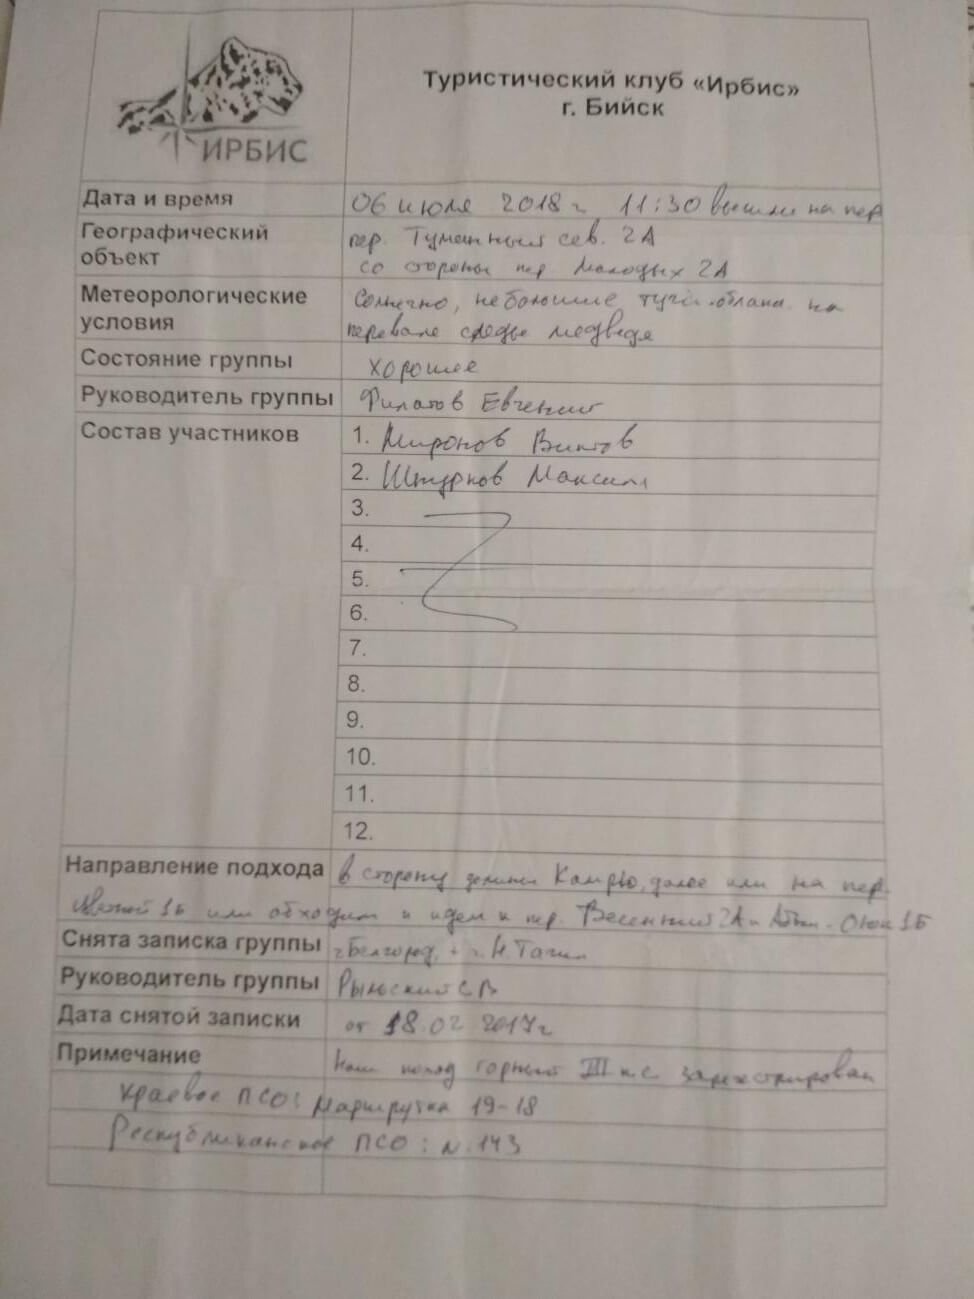 ИРБИС
Туристический клуб «Ирбис»
г. Бийск
Дата и время 06 июля 2018 г 11:30 вышли на пер
Географический объект пер. Туманный сев. 2А
со стороны пер. Молодых 2А
Метеорологические условия Солнечно, небольшие тучи-облака. на
перевале следы медведя
Состояние группы хорошее
Руководитель группы Филатов Евгений
Состав участников 1. Миронов
2. Штурнов Максим
3.
4.
5.
6.
7.
8.
9.
10.
11.
12.
Направление подхода в сторону долины Камрю, далее или на пер.
1Б или обходим и идем к пер. Весенний 2А и 1Б
Снята записка группы г. Белгород, + г. Н. Тагил
Руководитель группы Рыльский С В
Дата снятой записки от 18.02 2017г
Примечание Наш поход горный III к.с. зарегистрирован
краевое ПСО: Маршрутка 19-18
Республиканское ПСО: N. 143